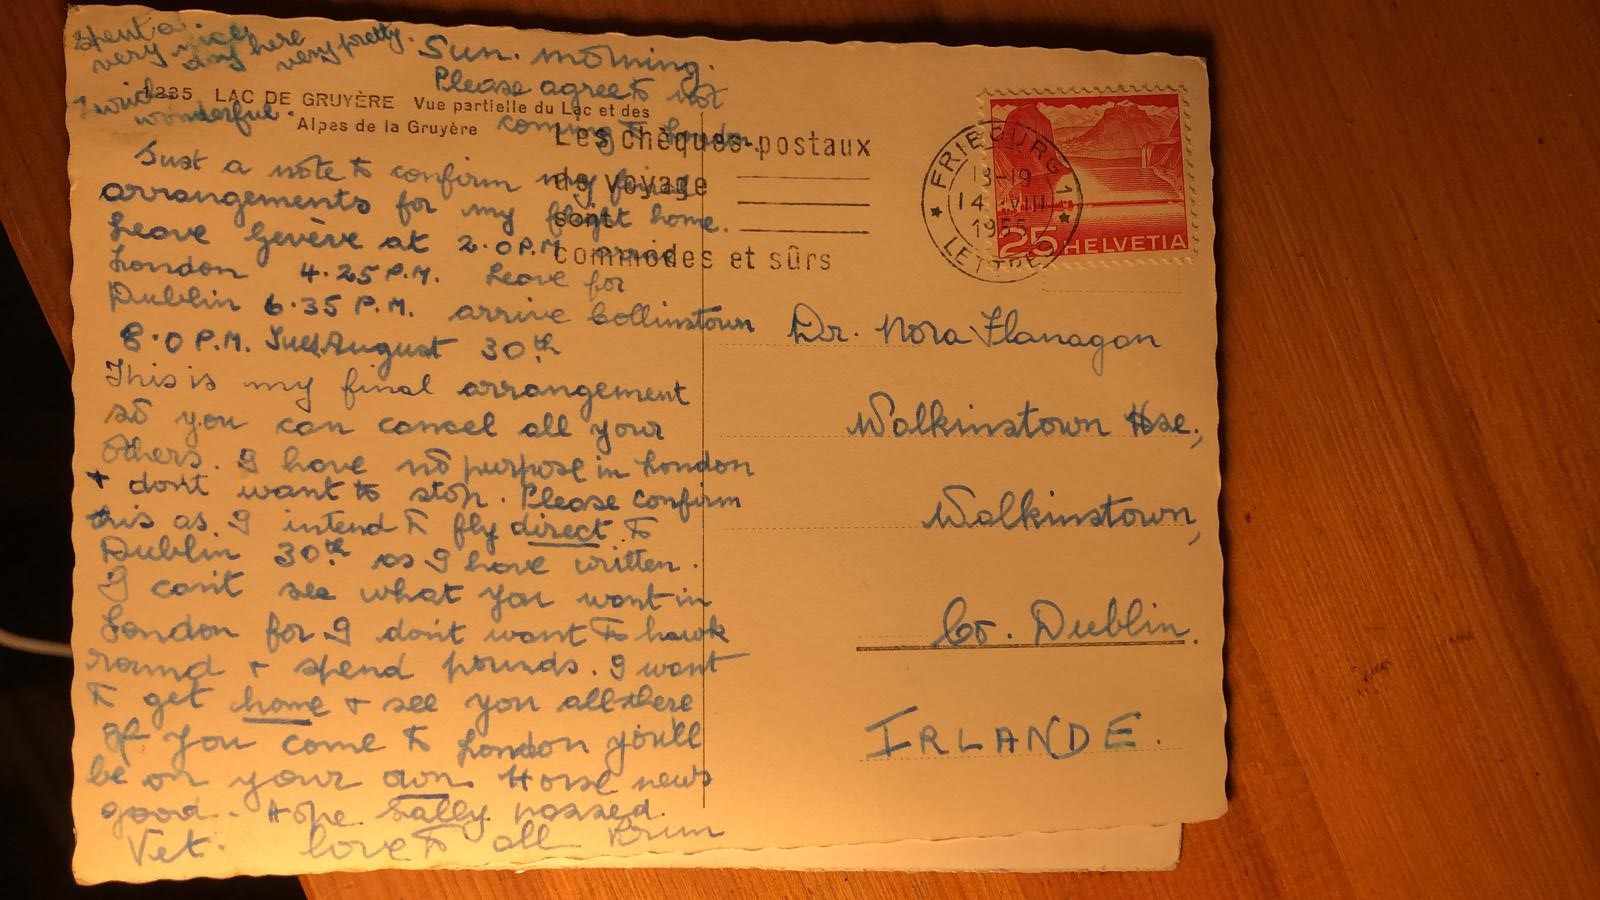 Spent a
very nice
day here
very pretty.
Sun. morning.
Please agree to not
coming to London.
wonderful.
1235 LAC DE GRUYÈRE Vue partielle du Lac et des
Alpes de la Gruyère
Les chèques postaux
de voyage
sont
commodes et sûrs
FRIBOURG 1
18-19
14 VIII
1955
LETTRES
25 HELVETIA
Just a note to confirm my
arrangements for my flight home.
Leave Genève at 2.0 P.M. arrive
London 4.25 P.M. Leave for
Dublin 6.35 P.M. arrive Collinstown
8.0 P.M. Tues August 30th
This is my final arrangement
so you can cancel all your
others. I have no purpose in London
+ don't want to stop. Please confirm
this as I intend to fly direct to
Dublin 30th as I have written.
I can't see what you want in
London for I don't want to hawk
round + spend pounds. I want
to get home + see you all there
If you come to London you'll
be on your own Horse news
good. Hope Sally passed
Vet. love to all
Dr. Nora Flanagan
Walkinstown Hse,
Walkinstown,
Co. Dublin.
IRLANDE.